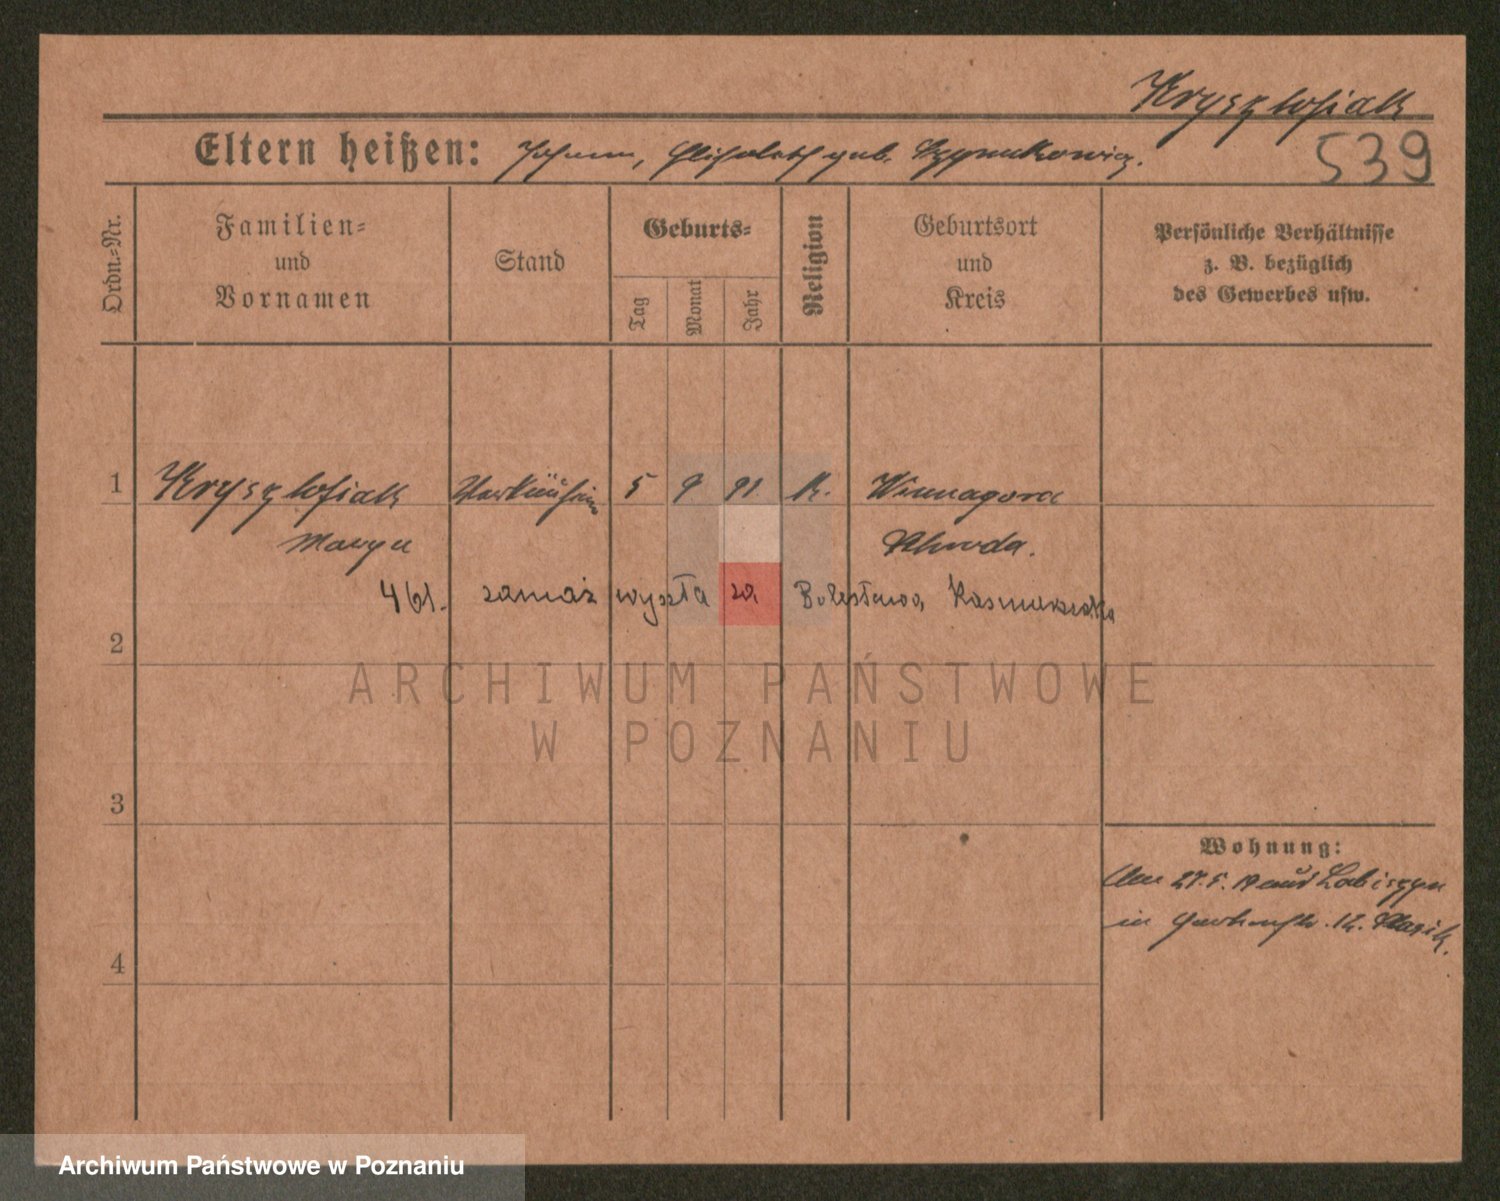 Krysztofiak
Eltern heißen: Johann, Elisabeth geb. Szymkowicz.
539
Ordn.=Nr.
Familien=
und
Vornamen
Stand
Geburts=
Tag
Monat
Jahr
Religion
Geburtsort
und
Kreis
Persönliche Verhältnisse
z. B. bezüglich
des Gewerbes usw.
1 Krysztofiak Verkäuferin 5 9 91 K. Winnagora
Marya Schroda.
461. zamąż wyszła za Bolesława
2
ARCHIWUM PAŃSTWOWE
W POZNANIU
3
Wohnung:
Am 27.5.19 aus Labiszyn
in 12.
4
Archiwum Państwowe w Poznaniu